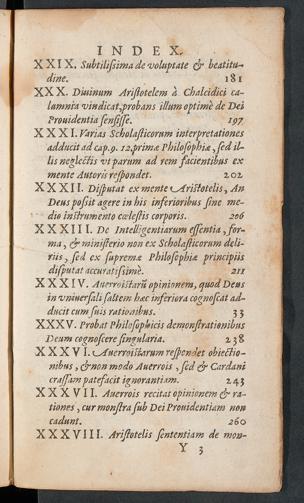 INDEX.
XXIX. Subtilissima de voluptate & beatitu-
dine. 181
XXX. Diuinum Aristotelem à Chalcidici ca-
lumnia vindicat, probans illum optimè de Dei
Prouidentia sensisse. 197
XXXI. Varias Scholasticorum interpretationes
adducit ad cap. 9. 12. primæ Philosophiæ, sed il-
lis neglectis vt parum ad rem facientibus ex
mente Autoris respondet. 202
XXXII. Disputat ex mente Aristotelis, An
Deus possit agere in his inferioribus sine me-
dio instrumento cælestis corporis. 206
XXXIII. De Intelligentiarum essentia, for-
ma, & ministerio non ex Scholasticorum deli-
riis, sed ex supremæ Philosophiæ principiis
disputat accuratissimè. 211
XXXIV. Auerroistarũ opinionem, quod Deus
in vniuersali saltem hæc inferiora cognoscat ad-
ducit cum suis rationibus. 33
XXXV. Probat Philosophicis demonstrationibus
Deum cognoscere singularia. 238
XXXVI. Auerroistarum respondet obiectio-
nibus, & non modo Auerrois, sed & Cardani
crassam patefacit ignorantiam. 243
XXXVII. Auerrois recitat opinionem & ra-
tiones, cur monstra sub Dei Prouidentiam non
cadunt. 260
XXXVIII. Aristotelis sententiam de mon-
Y 3